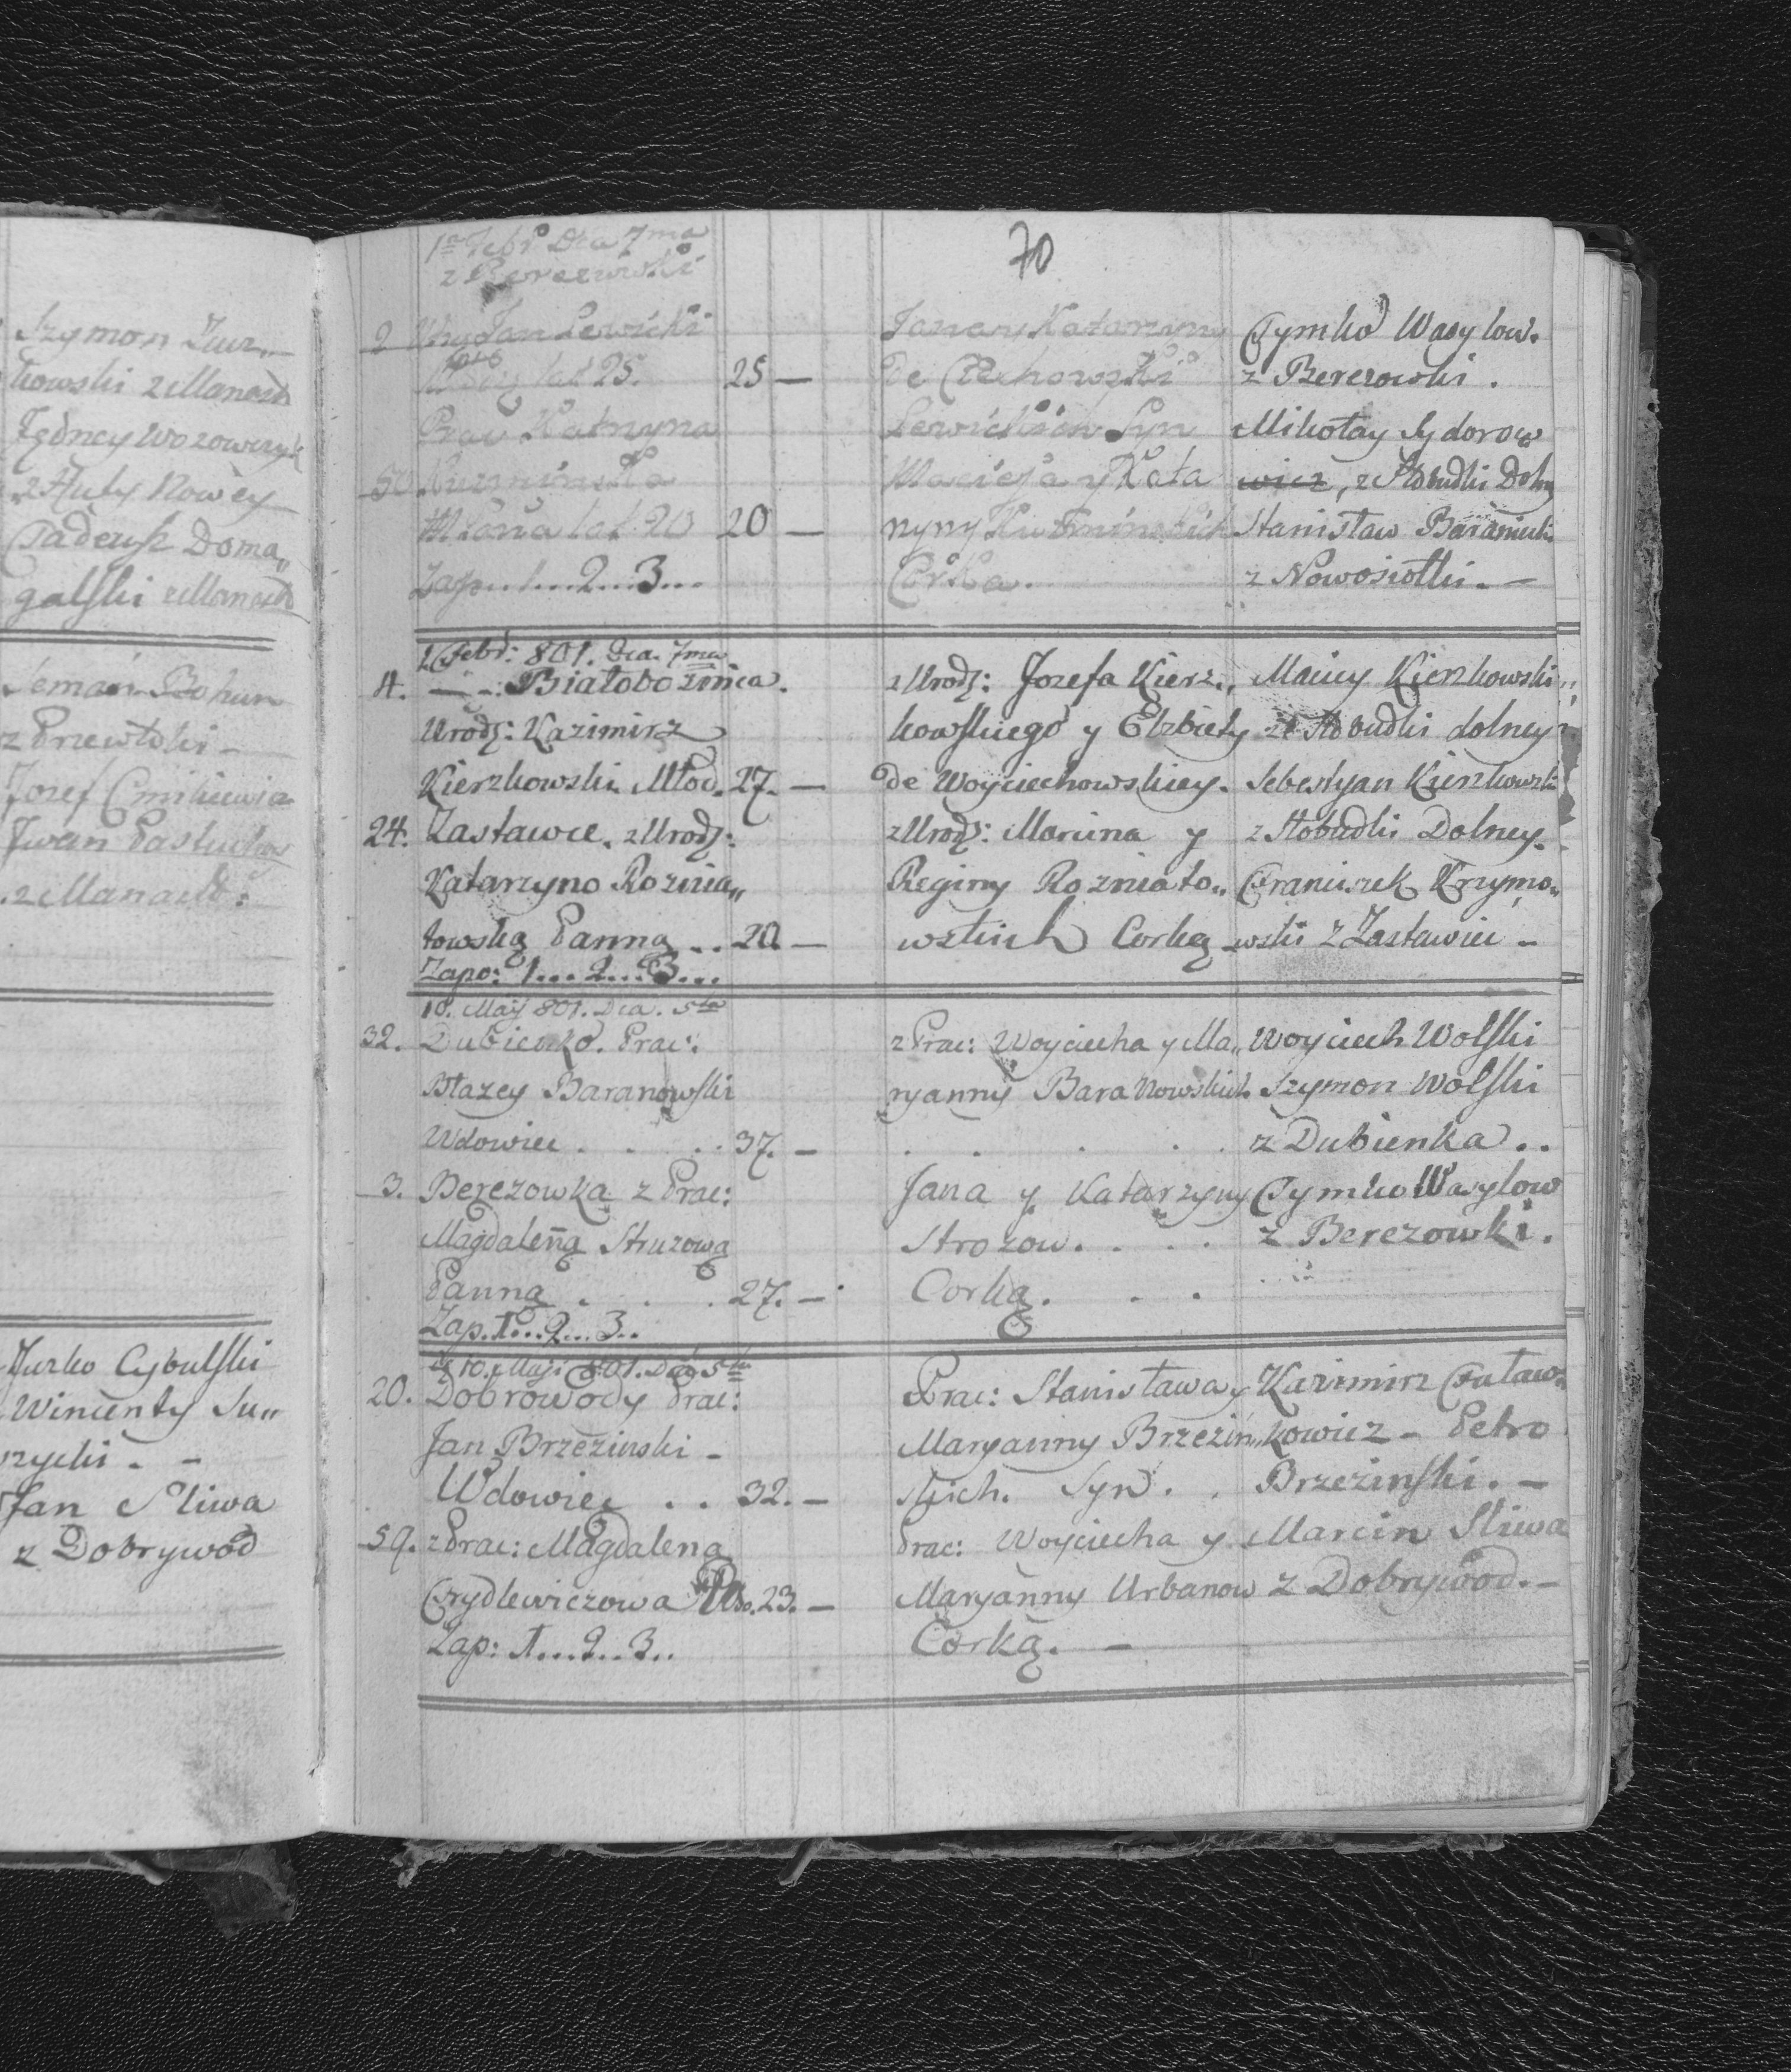 Szymon Zur„
kowski z Manast
Jędrzey Wozowczyk
z Huty Nowey
Tadeusz Doma„
galski z Manast
Seman Bohun
z Przewłoki –
Jozef
Iwan Pastuchow
z Manast:
Jurko Cybulski
Wincenty Su„
rzycki. –
Jan Sliwa
z Dobrywod
70
1a Febr Dia 7ma
z Berezowki
2 Jan Lewicki
lat 25. 25 –
Prac Katrzyna
50
lat 20 20 –
Zap. 1...2...3...
Jana y Katarzyny
de Czechowski
Lewickich Syn
Macieja y Kata
rzyny
Córka.
Tymko Wasylow.
z Berezowki.
Mikołay Sydorow
wicz, z Słobudki Dolny
Stanisław Baraniuk
z Nowosiołki. –
1 Febr: 801. Dia. 7ma
4. – – . Białobożnica.
Urodz: Kazimirz
Kierzkowski Młod. 27. –
24. Zastawce. z Urodz:
Katarzyno Roznia„
towską Panną .. 20 –
Zapo: 1...2...3...
z Urodz: Jozefa Kierz„
kowskiego y Elzbiety
de Woyciechowskiey.
z Urodz: Marcina y
Reginy Rozniato„
wskich Corką
Maciey Kierzkowski
ze Słobudki dolney
Sebestyan Kierzkowski
z Słobudki Dolney.
Franciszek Krzymo„
wski z Zastawiec –
10. Maij 801. Dia. 5ta
32. Dubienko. Prac:
Błazey Baranowski
Wdowiec . . . . 37. –
3. Berezowka z Prac:
Magdaleną Struzową
Panną . . . 27. –
Zap. 1...2...3..
z Prac: Woyciecha y Ma„
ryanny Baranowskich
Jana y Katarzyny
Strozow. . . .
Corką. . .
Woyciech Wolski
Szymon Wolski
z Dubienka ..
Tymko Wasylow
z Berezowki.
10. Maji 801. Dia 5ta
20. Dobrowody Prac:
Jan Brzezinski –
Wdowiec . . 32. –
59. z Prac: Magdaleną
Czydlewiczowa Wdo. 23. –
Zap: 1...2..3..
Prac: Stanisława y
Maryanny Brzeziń„
skich. Syn. .
Prac: Woyciecha y
Maryanny Urbanow
Corką. –
Kazimirz
kowicz – Petro
Brzezinski. –
Marcin Sliwa
z Dobrywod. –